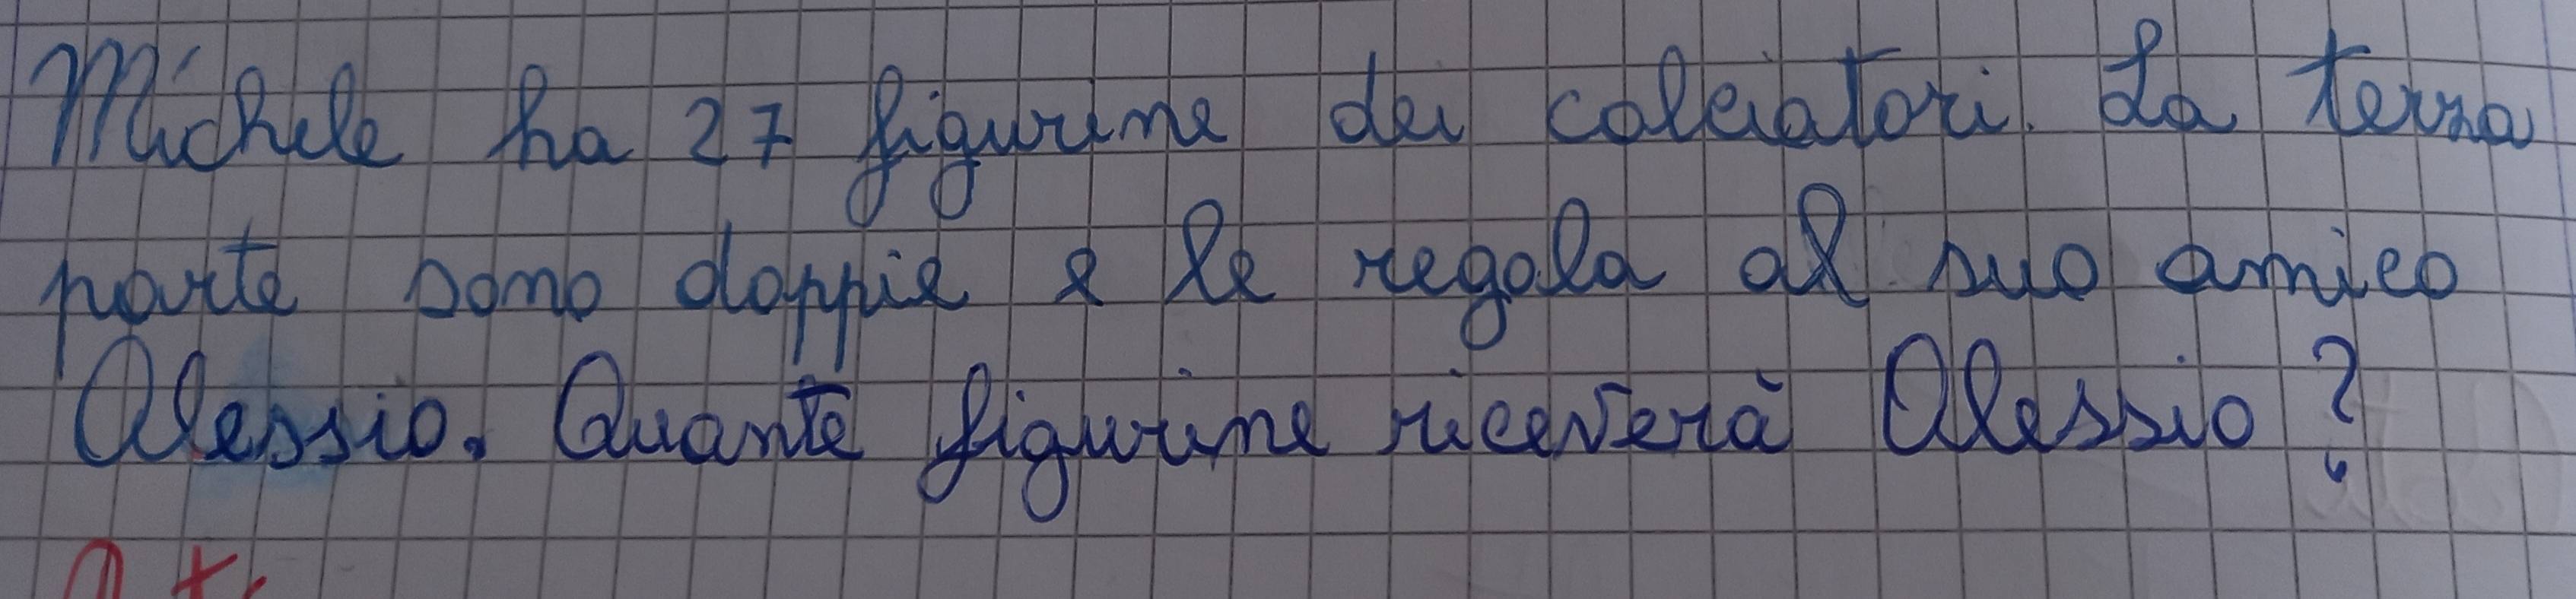 Michele ha 27 figurine dei calciatori. La terza
parte sono doppie e le regala al suo amico
Alessio. Quante figurine riceverà Alessio?